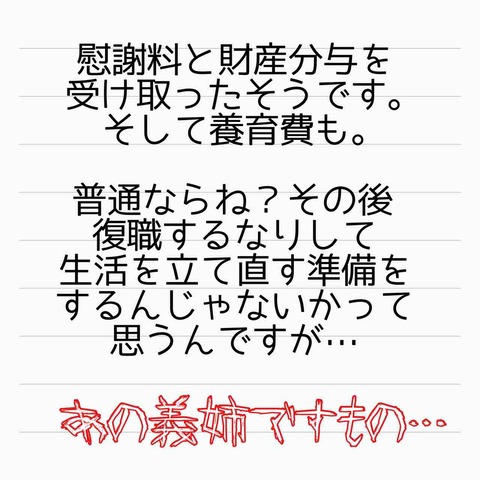 慰謝料と財産分与を
受け取ったそうです。
そして養育費も。
普通ならね？その後
復職するなりして
生活を立て直す準備を
するんじゃないかって
思うんですが…
あの義姉ですもの…